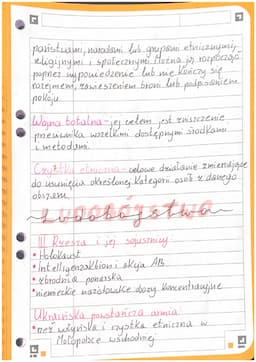 państwami, narodami lub grupami etnicznymi,
religijnymi i społecznymi. Można ją rozpocząć
poprzez wypowiedzenie lub nie. Kończy się
rozejmem, zawieszeniem broni lub podpisaniem
pokoju.
Wojna totalna - jej celem jest zniszczenie
przeciwnika wszelkimi dostępnymi środkami
i metodami.
Czystka etniczna - celowe działanie zmierzające
do usunięcia określonej kategorii osób z danego
obszaru.
Ludobójstwa
III Rzesza i jej sojusznicy:
• Holokaust
• Intelligenzaktion i akcja AB
• zbrodnia ponarska
• niemieckie nazistowskie obozy koncentracyjne
Ukraińska powstańcza armia
• rzeź wołyńska i czystka etniczna w
Małopolsce wschodniej